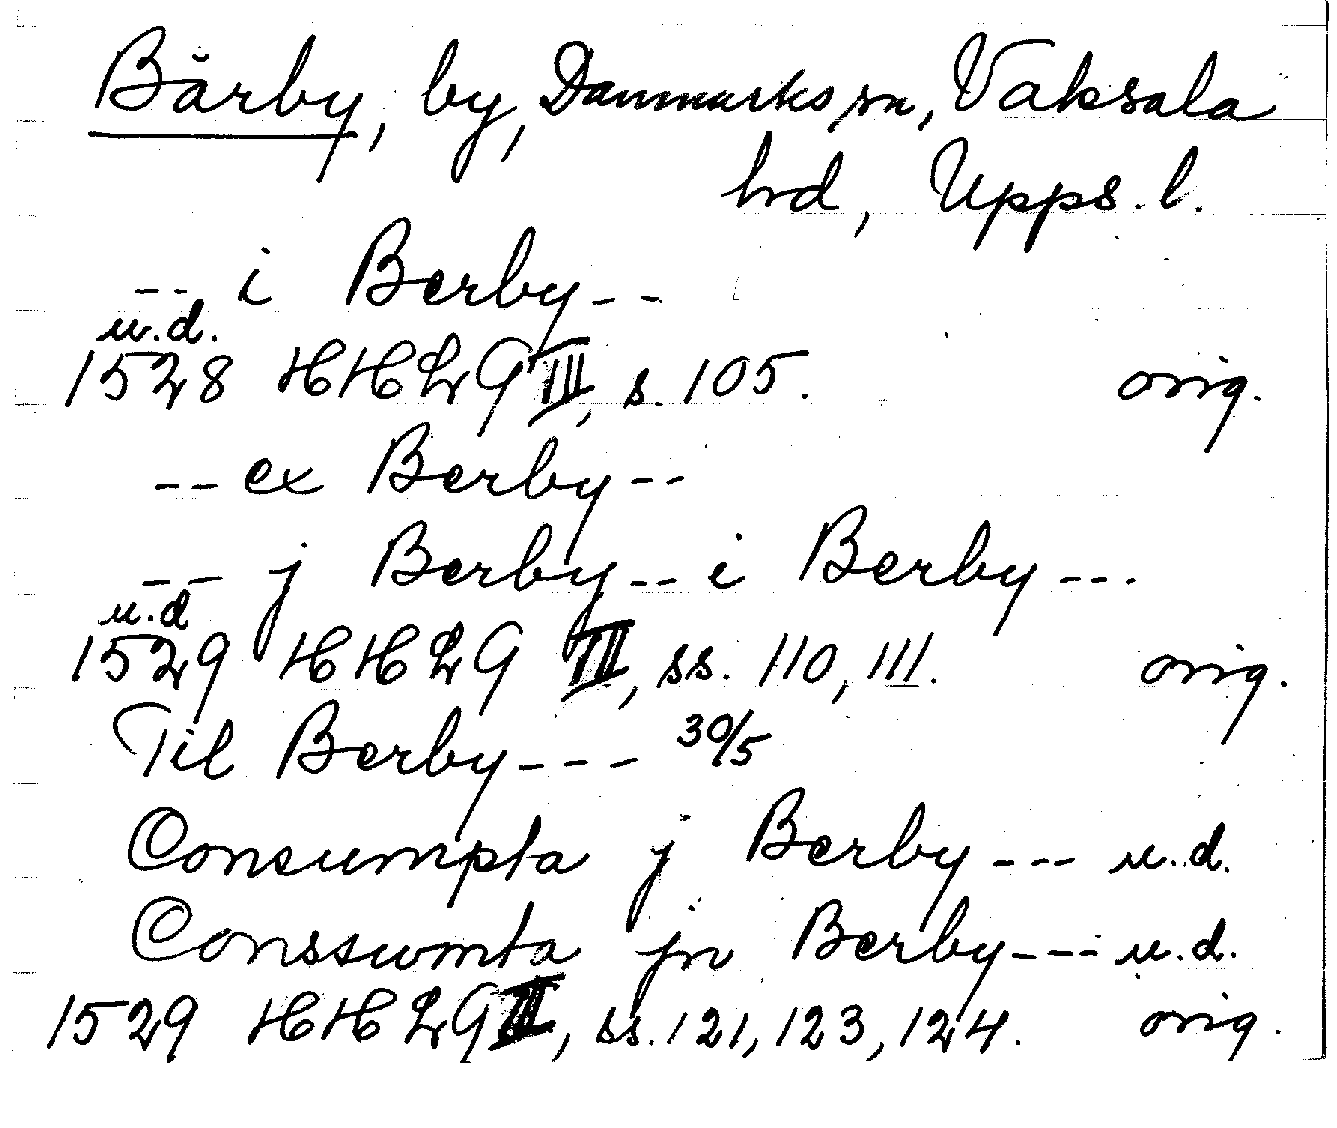 Bärby, by, Danmarks sn, Vaksala
hd, Upps. l.
-- i Berby --
u.d.
1528 HHLG III, s. 105. orig.
-- ex Berby --
-- j Berby -- i Berby ---
u.d
1529 HHLG III, ss. 110, 111. orig.
Til Berby --- 30/5
Consumpta j Berby --- u.d.
Conssumta jn Berby --- u.d.
1529 HHLG II, ss. 121, 123, 124. orig.